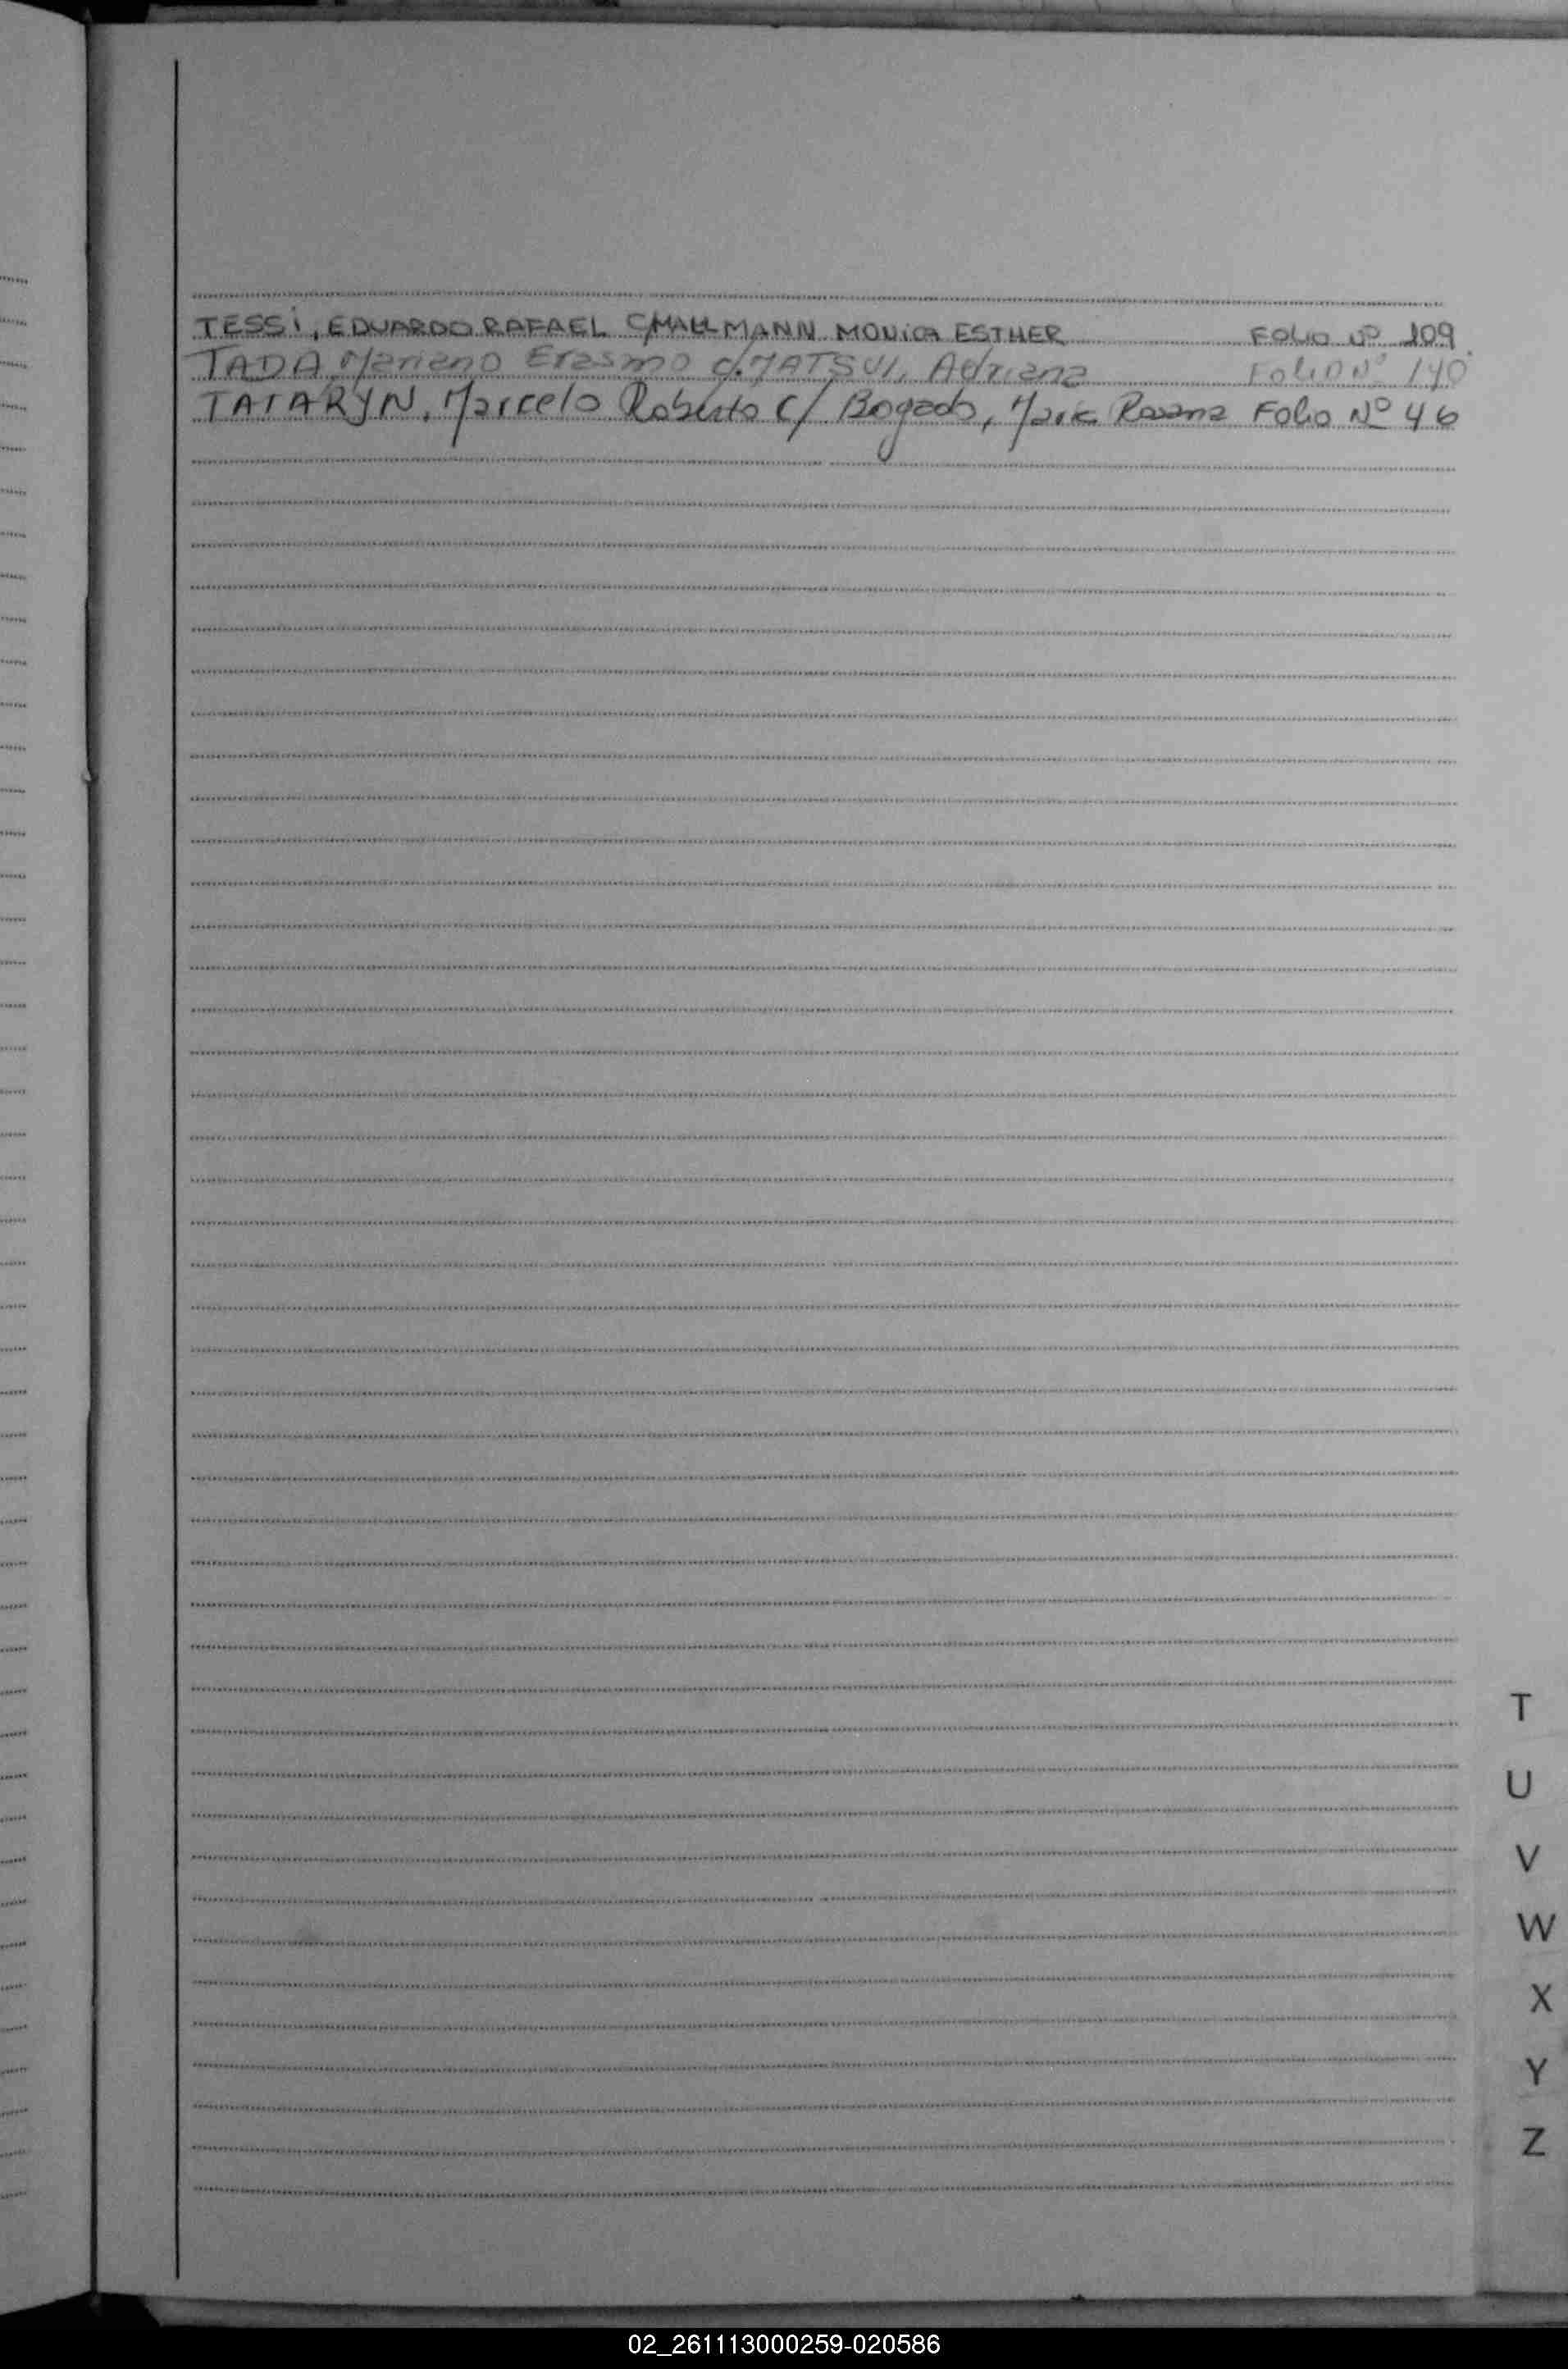 TESSi, EDUARDO RAFAEL C/MALLMANN MONiCA ESTHER FOLIO Nº 109
TADA, Mariano Erasmo c/. MATSUI, Adriana FOLIO Nº 140
TATARYN, Marcelo Roberto C/ Bogado, Maria Rosana FOLIO Nº 46
T
U
V
W
X
Y
Z
02_261113000259-020586